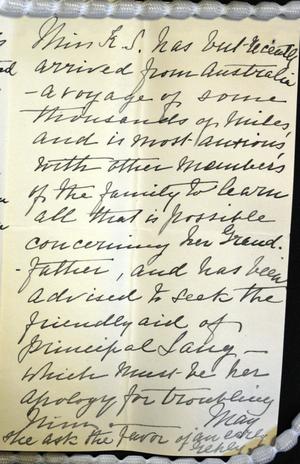 Miss K. S. has but recently
arrived from Australia
- a voyage of some
thousands of miles,
and is most anxious,
with other members
of the family to learn
all that is possible
concerning her Grand-
-father, and has been
advised to seek the
friendly aid of
Principal Lang -
which must be her
apology for troubling
him. May
she ask the favor of an early
reply.